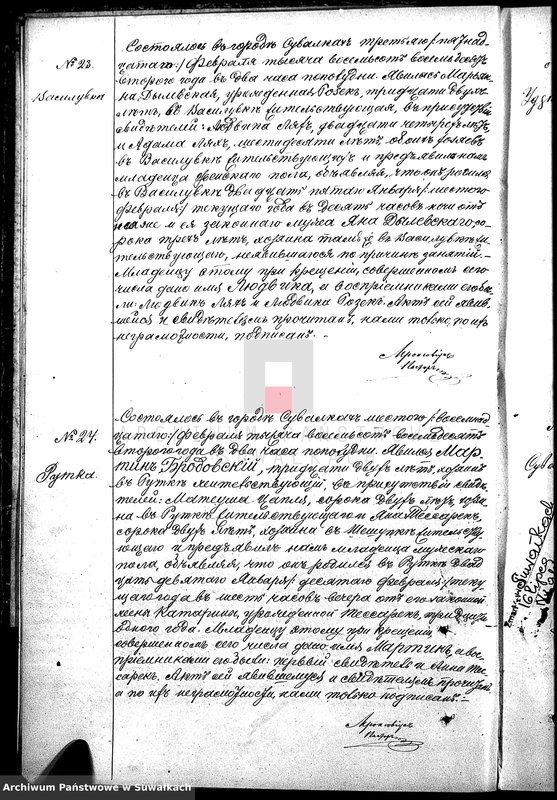 № 23.
Василувка
Состоялось въ городѣ Сувалкахъ третьяго /: пятнад-
цатаго :/ Февраля тысяча восемьсотъ восемьдесятъ
Второго года въ два часа пополудни. Явилась Марья-
на Дылевская, урожденная Розекъ, тридцати двухъ
лѣтъ, въ Василувкѣ жительствующая, въ присутствіи
свидѣтелей: двадцати четырехъ лѣтъ,
и Адама Ляхъ, шестидесяти лѣтъ, обоихъ
въ Василувкѣ жительствующихъ и предъявила намъ
младенца женскаго пола, объявляя, что онъ родился
въ Василувкѣ двадцать пятаго Января /: шестого
Февраля :/ текущаго года въ десять часовъ ночи отъ
нея же и ея законнаго мужа Яна Дылевскаго, со-
рока трехъ лѣтъ, хозяина тамъ же въ Василувкѣ жи-
тельствующаго, неявившагося по причинѣ занятій.
Младенцу этому при крещеніи, совершенномъ сего
числа дано имя Людвика, а воспріемниками его бы-
ли: Людвикъ Ляхъ и Людвика Розекъ. Актъ сей явив-
шейся и свидѣтелямъ прочитанъ, нами только, по ихъ
неграмотности, подписанъ.
№ 24.
Рутка.
Состоялось въ городѣ Сувалкахъ шестого /: восемнад-
цатаго :/ Февраля тысяча восемьсотъ восемьдесятъ
Второго года въ два часа пополудни. Явился Мар-
тинъ Бродовскій, тридцати двухъ лѣтъ, хозяинъ
въ Руткѣ жительствующій, въ присутствіи свидѣ-
телей: Матеуша Цапля, сорока двухъ лѣтъ, хозяи-
на въ Руткѣ жительствующаго и Яна Тессарекъ,
сорока двухъ лѣтъ, хозяина въ жительству-
ющаго и предъявилъ намъ младенца мужскаго
пола, объявляя, что онъ родился въ Руткѣ двад-
цать девятаго Января /: десятаго Февраля :/ теку-
щаго года въ шесть часовъ вечера отъ его законной
жены Катарины, урожденной Тессарекъ, тридцати
одного года. Младенцу этому при крещеніи,
совершенномъ сего числа дано имя Мартинъ, а вос-
пріемниками его были первый свидѣтель и Анна Тес-
сарекъ. Актъ сей явившемуся и свидѣтелямъ прочитанъ,
а по ихъ неграмотности, нами только подписанъ.
Archiwum Państwowe w Suwałkach